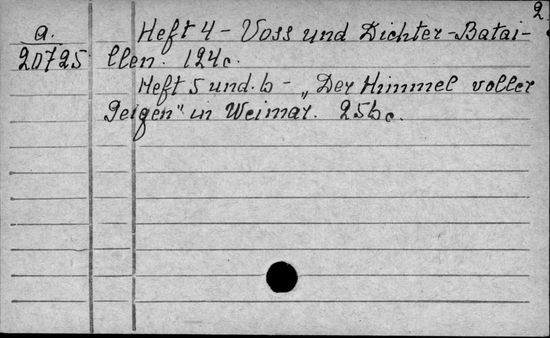 2.
a. Heft 4 - Voss und Dichter-Batai-
20725 llen. 124c.
Heft 5 und. b - „Der Himmel voller
Geigen" in Weimar. 256c.